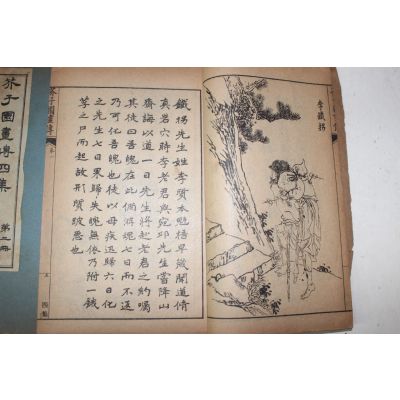 李鐵拐
鐵拐先生姓李質本魁梧早歲聞道脩
真岩穴時李老君與宛邱先生嘗降山
齋誨以道一日先生將赴老君之約囑
其徒曰吾魄在此倘游魂七日而不返
乃可化吾魄也徒以母疾迅歸六日化
之先生七日果歸失魄無依乃附一餓
莩之尸而起故形質跛惡也
芥子園畫傳
四集
芥子園畫傳四集